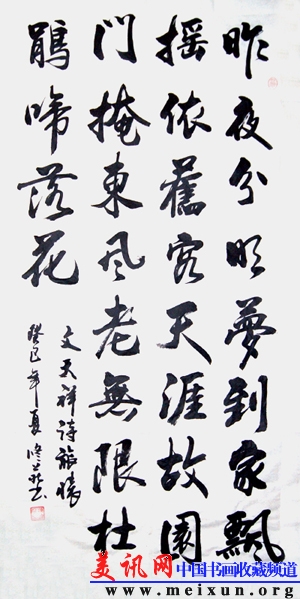 昨夜分明夢到家飄
摇依舊客天涯故園
門掩東風老無限杜
鵑啼落花
文天祥诗旅懷
癸巳年夏
美讯网 中国书画收藏频道
www.meixun.org